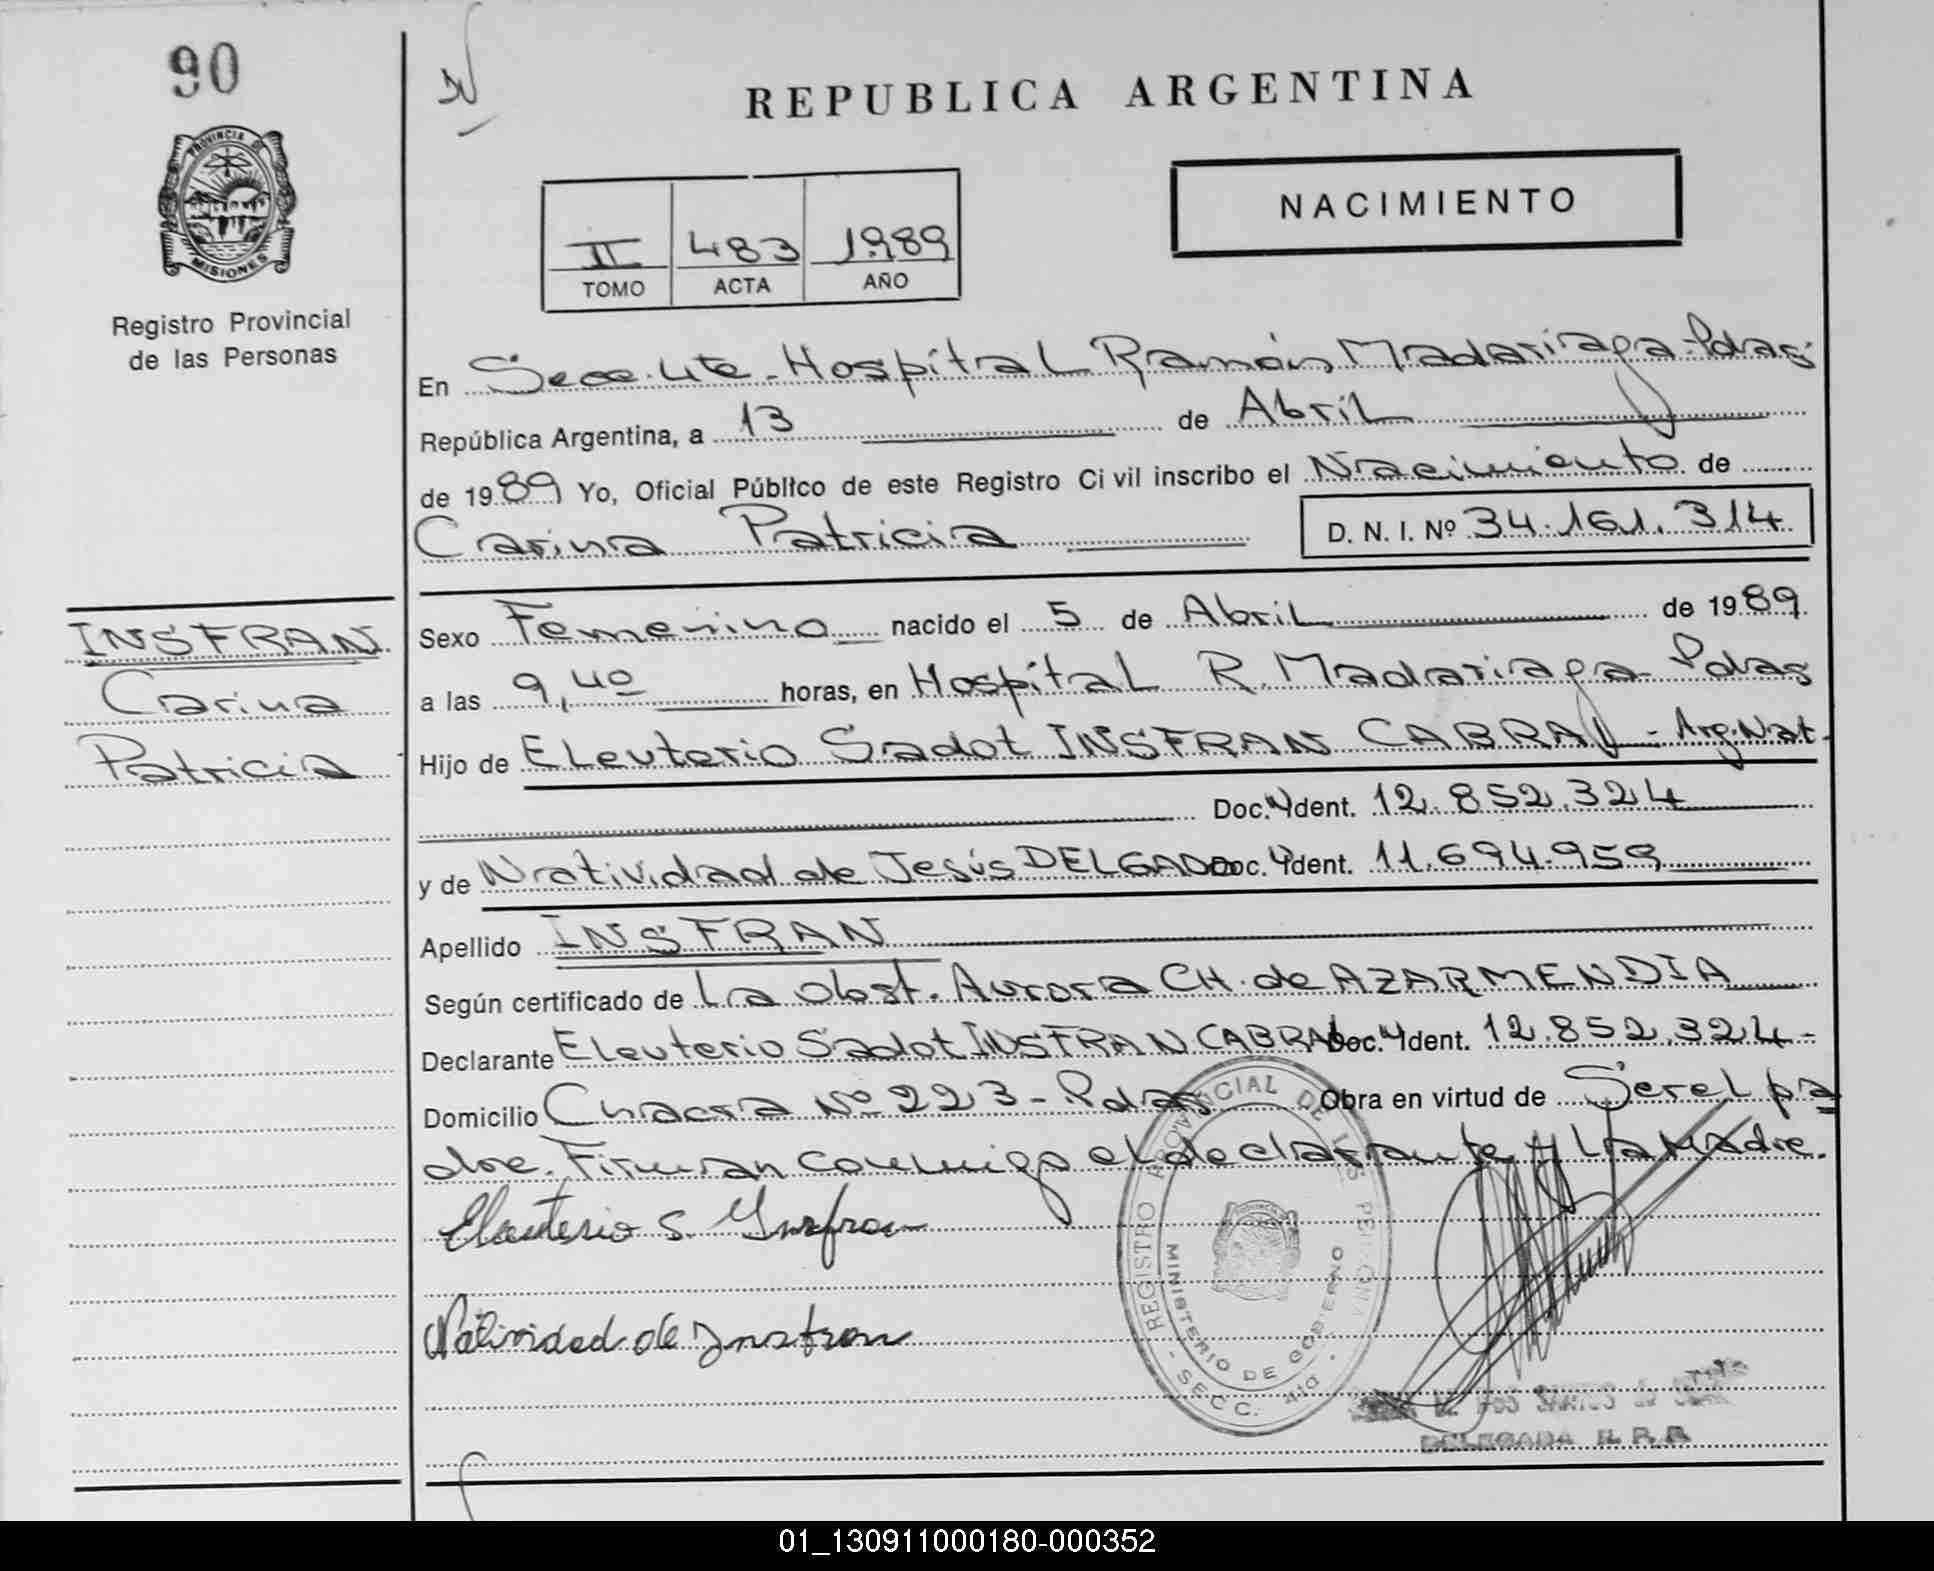 90
PROVINCIA DE
MISIONES
Registro Provincial
de las Personas
INSFRAN
Carina
Patricia
REPUBLICA ARGENTINA
NACIMIENTO
II 483 1989
TOMO ACTA AÑO
En Secc. 4ta. Hospital Ramón Madariaga-Pdas.
República Argentina, a 13 de Abril
de 1989 Yo, Oficial Público de este Registro Civil inscribo el Nacimiento de
Carina Patricia D. N. I. Nº 34.161.314
Sexo Femenino nacido el 5 de Abril de 1989
a las 9,40 horas, en Hospital R. Madariaga Pdas
Hijo de Eleuterio Sadot INSFRAN CABRAL - Arg.Nat.
Doc. Ydent. 12.852.324
y de Natividad de Jesús DELGADO Doc. Ydent. 11.694.959
Apellido INSFRAN
Según certificado de La Obst. Aurora CH. de AZARMENDIA
Declarante Eleuterio Sadot INSFRAN CABRAL Doc. Ydent. 12.852.324-
Domicilio Chacra Nº 223 - Pdas Obra en virtud de Ser el pa
dre. Firman conmigo el declarante y La Madre.
Eleuterio S. Ynsfran
Natividad de Ynsfran
REGISTRO PROVINCIAL DE LAS PERSONAS
MINISTERIO DE GOBIERNO
- SECC. 4ta -
DOS SANTOS
DELEGADA R. P. P.
01_130911000180-000352